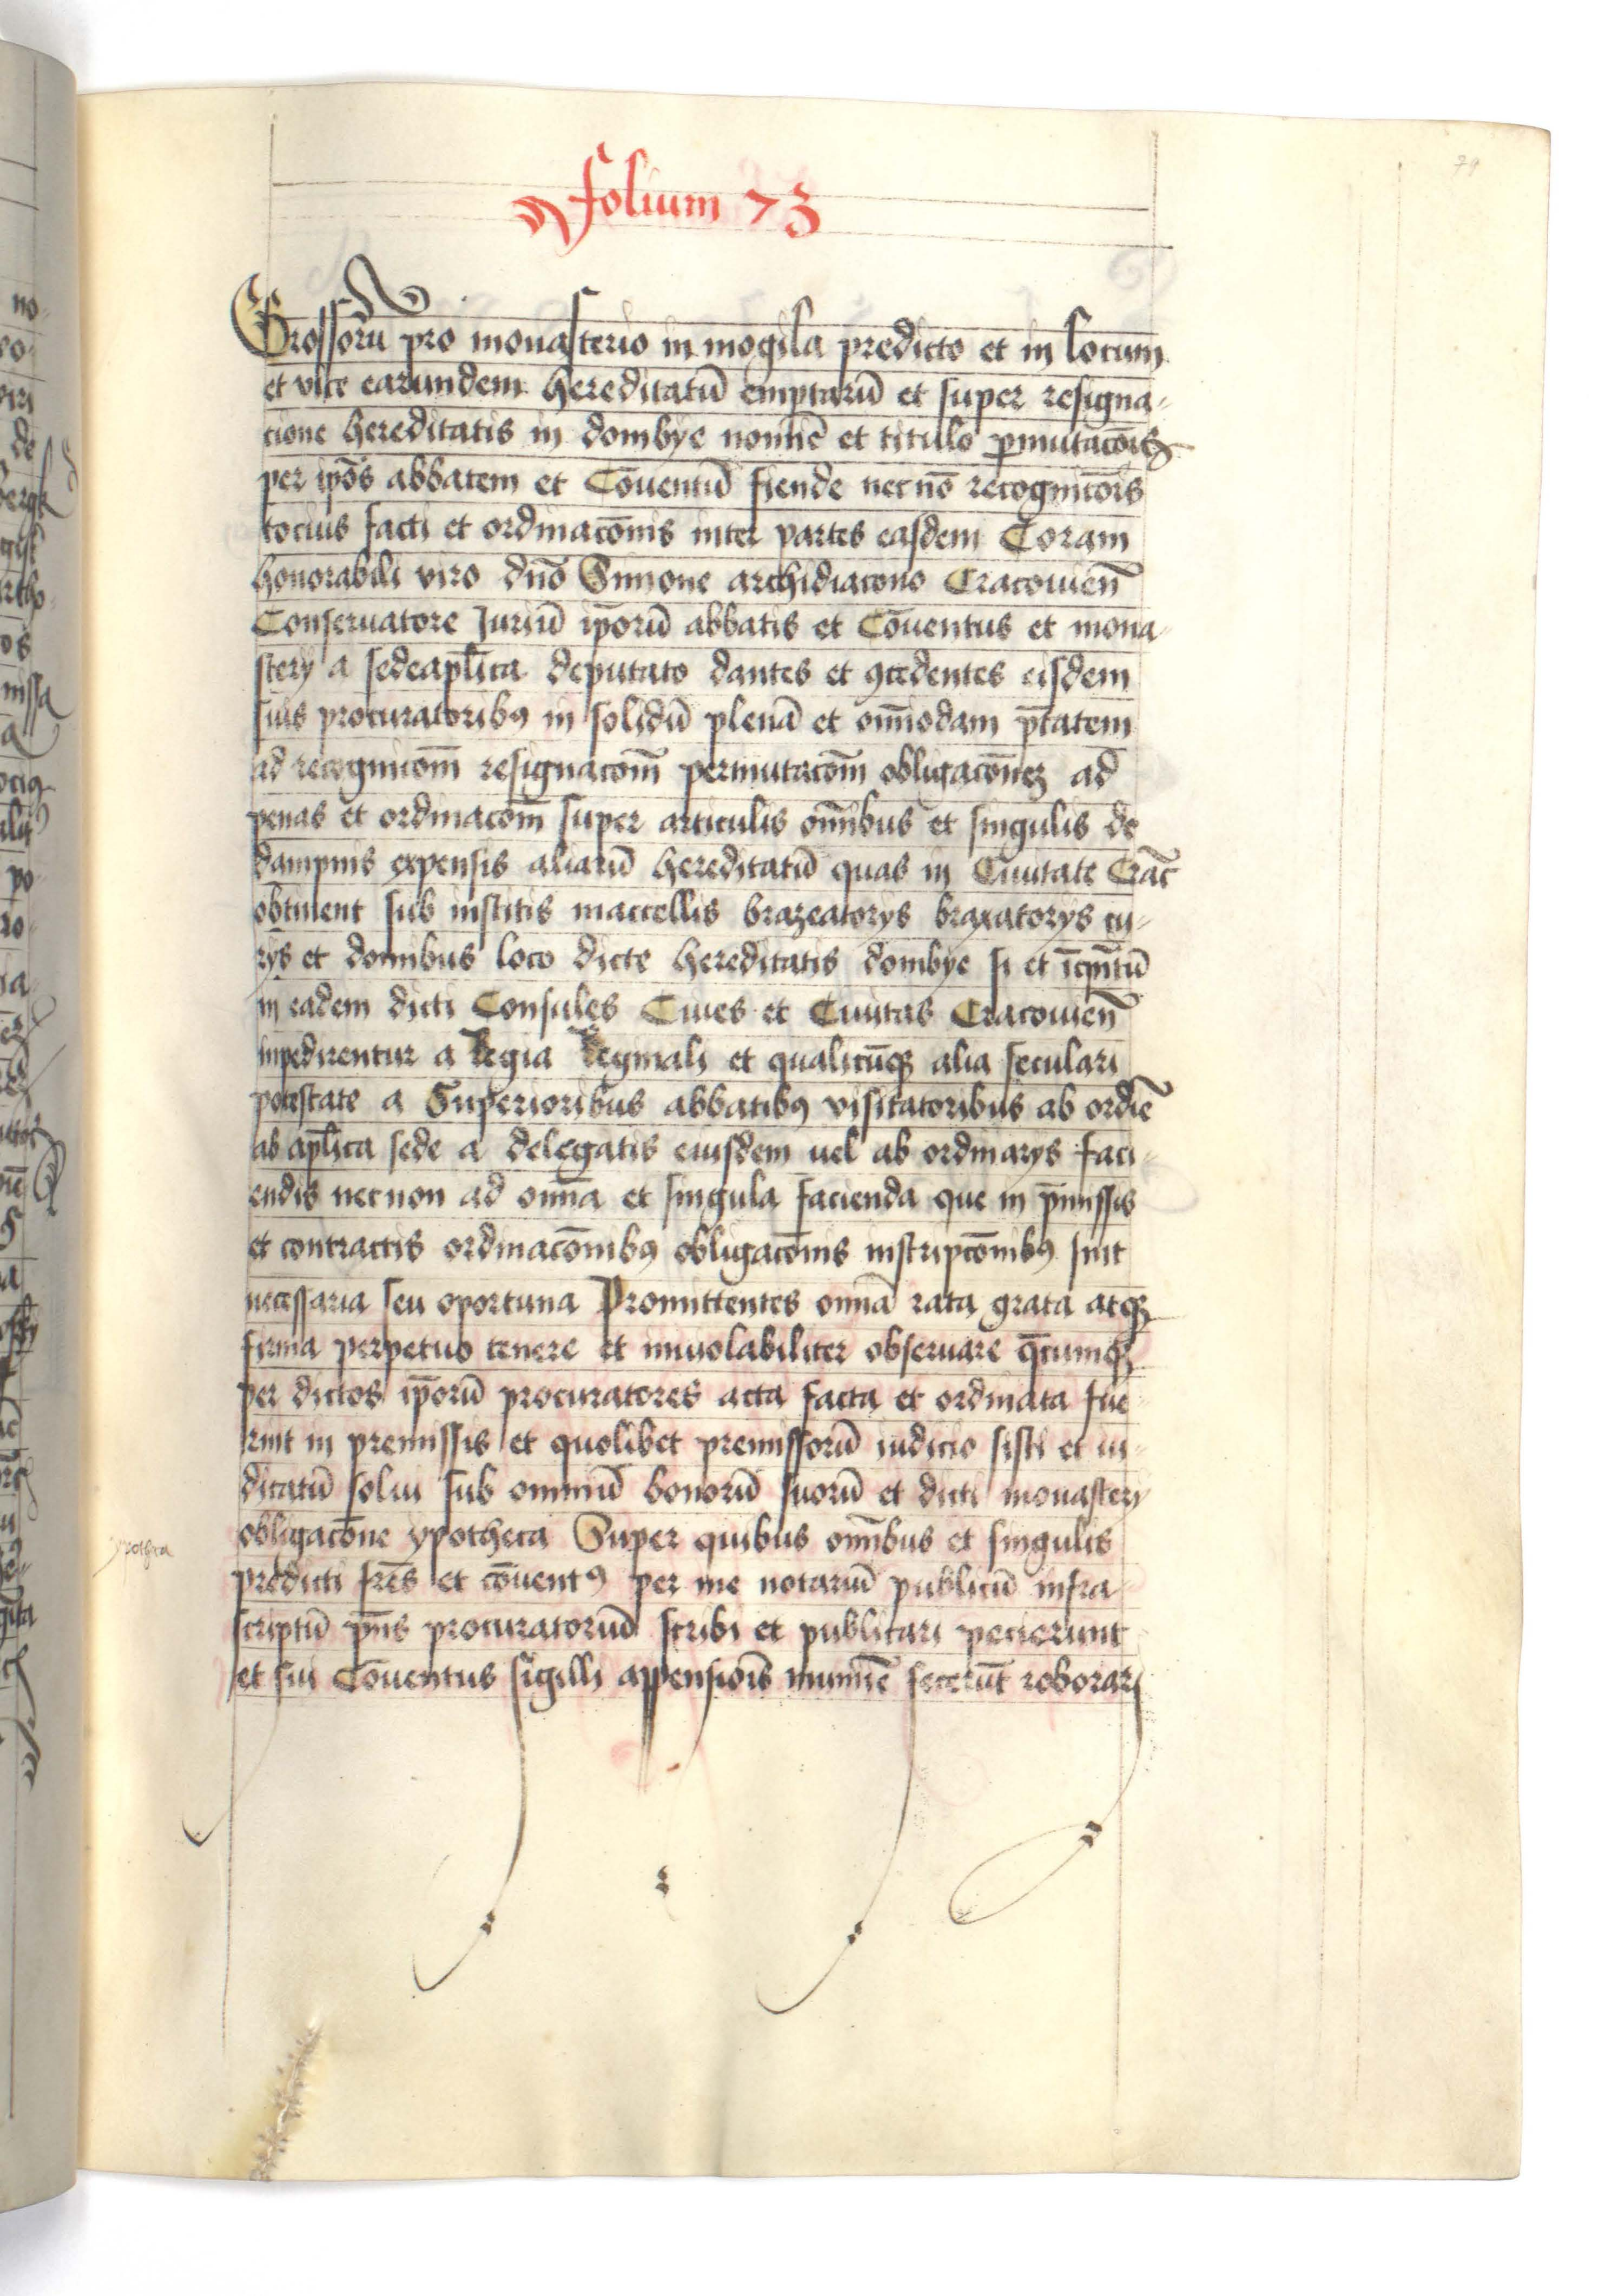 folium 73
79
Grossorū pro monasterio in mogila predicto et in locum
et vice earundem hereditatū emptarū et super resigna-
cione hereditatis in dombye nomīe et titulo ꝑmutacōis
per ip̄os abbatem et Cōuentū fiende necnō recognicōis
tocius facti et ordinacōnis inter partes easdem Coram
honorabili viro dn̄o Simone archidiacono Cracouien̄
Conseruatore Juriū ip̄orū abbatis et Cōuentus et mona-
stery a sede apl̄ica deputato dantes et ꝯcedentes eisdem
suis procuratoribꝰ in solidū plenā et om̄imodam p̄tatem
ad recognicōm̄ resignacōm̄ permutacōm̄ obligacōnez ad
penas et ordinacōm̄ super articulis om̄ibus et singulis de
dampnis expensis aliarū hereditatū quas in Ciuitate Crac̄
obtinent sub institis maccellis brazeatorys braxatorys cu-
rys et domibus loco dicte hereditatis dombye si et īcp̄ntū
in eadem dicti Consules Ciues et Ciuitas Cracouien̄
inpedirentur a Regia Reginali et qualicūqꝫ alia seculari
potestate a Superioribus abbatibꝰ visitatoribus ab ordīe
ab apl̄ica sede a delegatis eiusdem uel ab ordinarys faci-
endis necnon ad om̄ia et singula facienda que in p̄missis
et contractis ordinacōnibꝰ obligacōnis inscripcōnibꝰ sint
necessaria seu oportuna Promittentes om̄ia rata grata atqꝫ
firma perpetuo tenere et inuiolabiliter obseruare q̄cumqꝫ
per dictos ip̄orū procuratores acta facta et ordinata fue-
rint in premissis et quolibet premissorū iudicio sisti et iu-
dicatū solui sub omniū bonorū suorū et dicti monastery
obligacōne ypotheca Super quibus om̄ibus et singulis
ypotheca
predicti fr̄es et cōuentꝰ per me notariū publicū infra-
scriptū p̄ns procuratoriū scribi et publicari pecierunt
et sui Cōuentus sigilli appensiōis munimīe fecerūt roborari